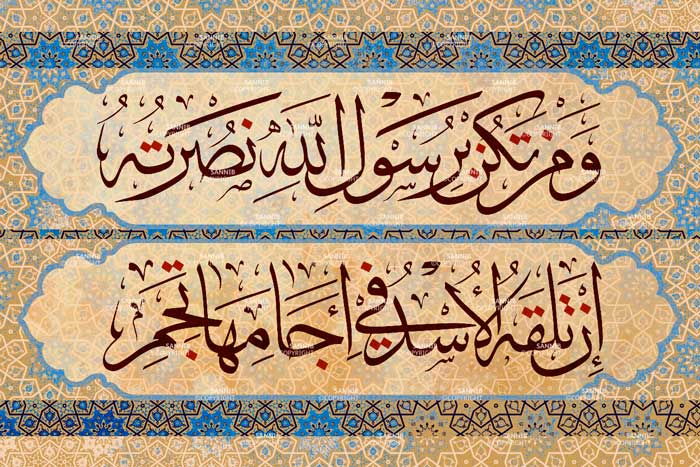 وَمَنْ تَكُنْ بِرَسُولِ اللَّهِ نُصْرَتُهُ
إِنْ تَلْقَهُ الْأُسْدُ فِي آجَامِهَا تَجِمِ
SANNIB
COPYRIGHT